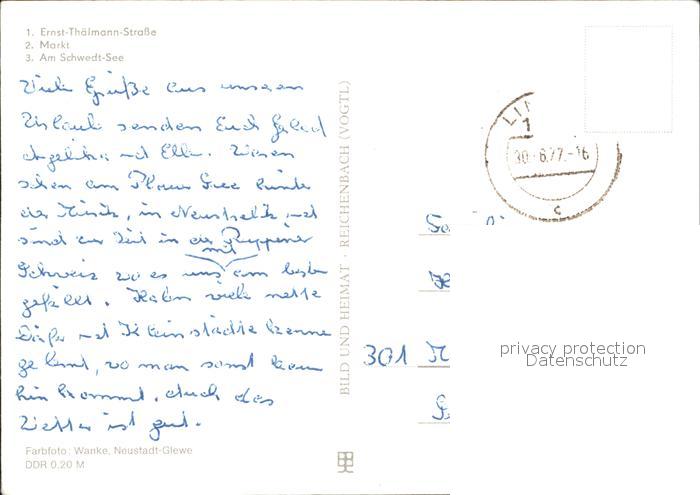 1. Ernst-Thälmann-Straße
2. Markt
3. Am Schwedt-See
Viele Grüße aus unseren
Urlaub senden Euch Gerhard
Angelika und Ella. Waren
schon am Plauer See hinter
der Müritz, in Neustrelitz und
sind zur Zeit in der Ruppiner
Schweiz wo es uns mit am besten
gefällt. Haben viele nette
Dörfer und Kleinstädte kennen
gelernt, wo man sonst kaum
hin kommt. Auch das
Wetter ist gut.
Farbfoto: Wanke, Neustadt-Glewe
DDR 0,20 M
BILD UND HEIMAT · REICHENBACH (VOGTL)
LI
1
30.-6.77.-16
c
301
privacy protection
Datenschutz